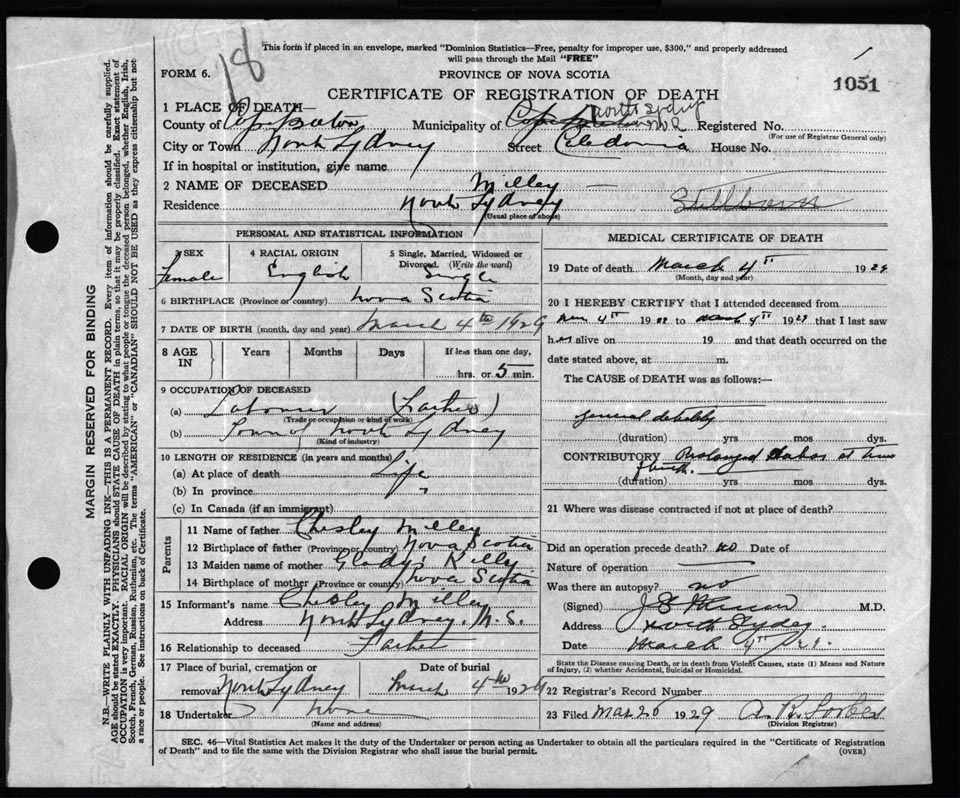 18
This form if placed in an envelope, marked "Dominion Statistics—Free, penalty for improper use, $300," and properly addressed
will pass through the Mail "FREE"
FORM 6.
PROVINCE OF NOVA SCOTIA
1051
CERTIFICATE OF REGISTRATION OF DEATH
1 PLACE OF DEATH—
North Sydney
County of Cape Breton Municipality of Cape Registered No.
(For use of Registrar General only)
City or Town North Sydney Street Caledonia House No.
If in hospital or institution, give name
2 NAME OF DECEASED Milley — Stillborn
Residence North Sydney
(Usual place of abode)
PERSONAL AND STATISTICAL INFORMATION
3 SEX Female
4 RACIAL ORIGIN English
5 Single, Married, Widowed or Divorced. (Write the word) Single
6 BIRTHPLACE (Province or country) Nova Scotia
7 DATE OF BIRTH (month, day and year) March 4th 1929
8 AGE IN Years Months Days If less than one day, hrs. or 5 min.
9 OCCUPATION OF DECEASED
(a) Labourer (Father)
(Trade or occupation or kind of work)
(b) North Sydney
(Kind of industry)
10 LENGTH OF RESIDENCE (in years and months)
(a) At place of death Life
(b) In province "
(c) In Canada (if an immigrant)
Parents
11 Name of father Chesley Milley
12 Birthplace of father (Province or country) Nova Scotia
13 Maiden name of mother Gladys Kelly
14 Birthplace of mother (Province or country) Nova Scotia
15 Informant's name Chesley Milley
Address North Sydney. N.S.
16 Relationship to deceased Father
17 Place of burial, cremation or removal North Sydney
Date of burial March 4th 1929
18 Undertaker None
(Name and address)
MEDICAL CERTIFICATE OF DEATH
19 Date of death March 4th 1929
(Month, day and year)
20 I HEREBY CERTIFY that I attended deceased from
4th 19 to March 4th 1929 that I last saw
h alive on 19 and that death occurred on the
date stated above, at m.
The CAUSE of DEATH was as follows:—
general debility
(duration) yrs mos dys.
CONTRIBUTORY Prolonged labor at time
birth.
(duration) yrs. mos dys.
21 Where was disease contracted if not at place of death?
Did an operation precede death? no Date of
Nature of operation —
Was there an autopsy? no
(Signed) M.D.
Address North Sydney
Date March 4th
State the Disease causing Death, or in death from Violent Causes, state (1) Means and Nature
of Injury, (2) whether Accidental, Suicidal or Homicidal.
22 Registrar's Record Number
23 Filed Mar 25 1929 A. R. Forbes
(Division Registrar)
SEC. 46—Vital Statistics Act makes it the duty of the Undertaker or person acting as Undertaker to obtain all the particulars required in the "Certificate of Registration
of Death" and to file the same with the Division Registrar who shall issue the burial permit. (OVER)
MARGIN RESERVED FOR BINDING
N.B.—WRITE PLAINLY WITH UNFADING INK—THIS IS A PERMANENT RECORD. Every item of information should be carefully supplied.
AGE should be stated EXACTLY. PHYSICIANS should STATE CAUSE OF DEATH in plain terms, so that it may be properly classified. Exact statement of
OCCUPATION is very important. RACIAL ORIGIN will be described by stating to what people or tongue the deceased person belonged, whether English, Irish,
Scotch, French, German, Russian, Ruthenian, etc. The terms "AMERICAN" or "CANADIAN" SHOULD NOT BE USED as they express citizenship but not
a race or people. See instructions on back of Certificate.